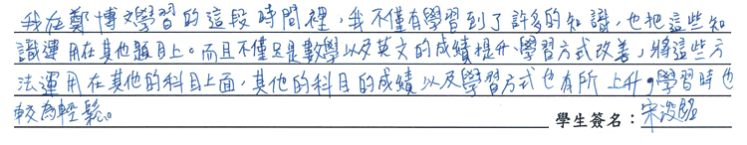 我在鄭博文學習的這段時間裡，我不僅有學習到了許多的知識，也把這些知
識運用在其他題目上。而且不僅只是數學以及英文的成績提升、學習方式改善，將這些方
法運用在其他的科目上面，其他的科目的成績以及學習方式也有所上升，學習時也
較為輕鬆。
學生簽名：宋浚